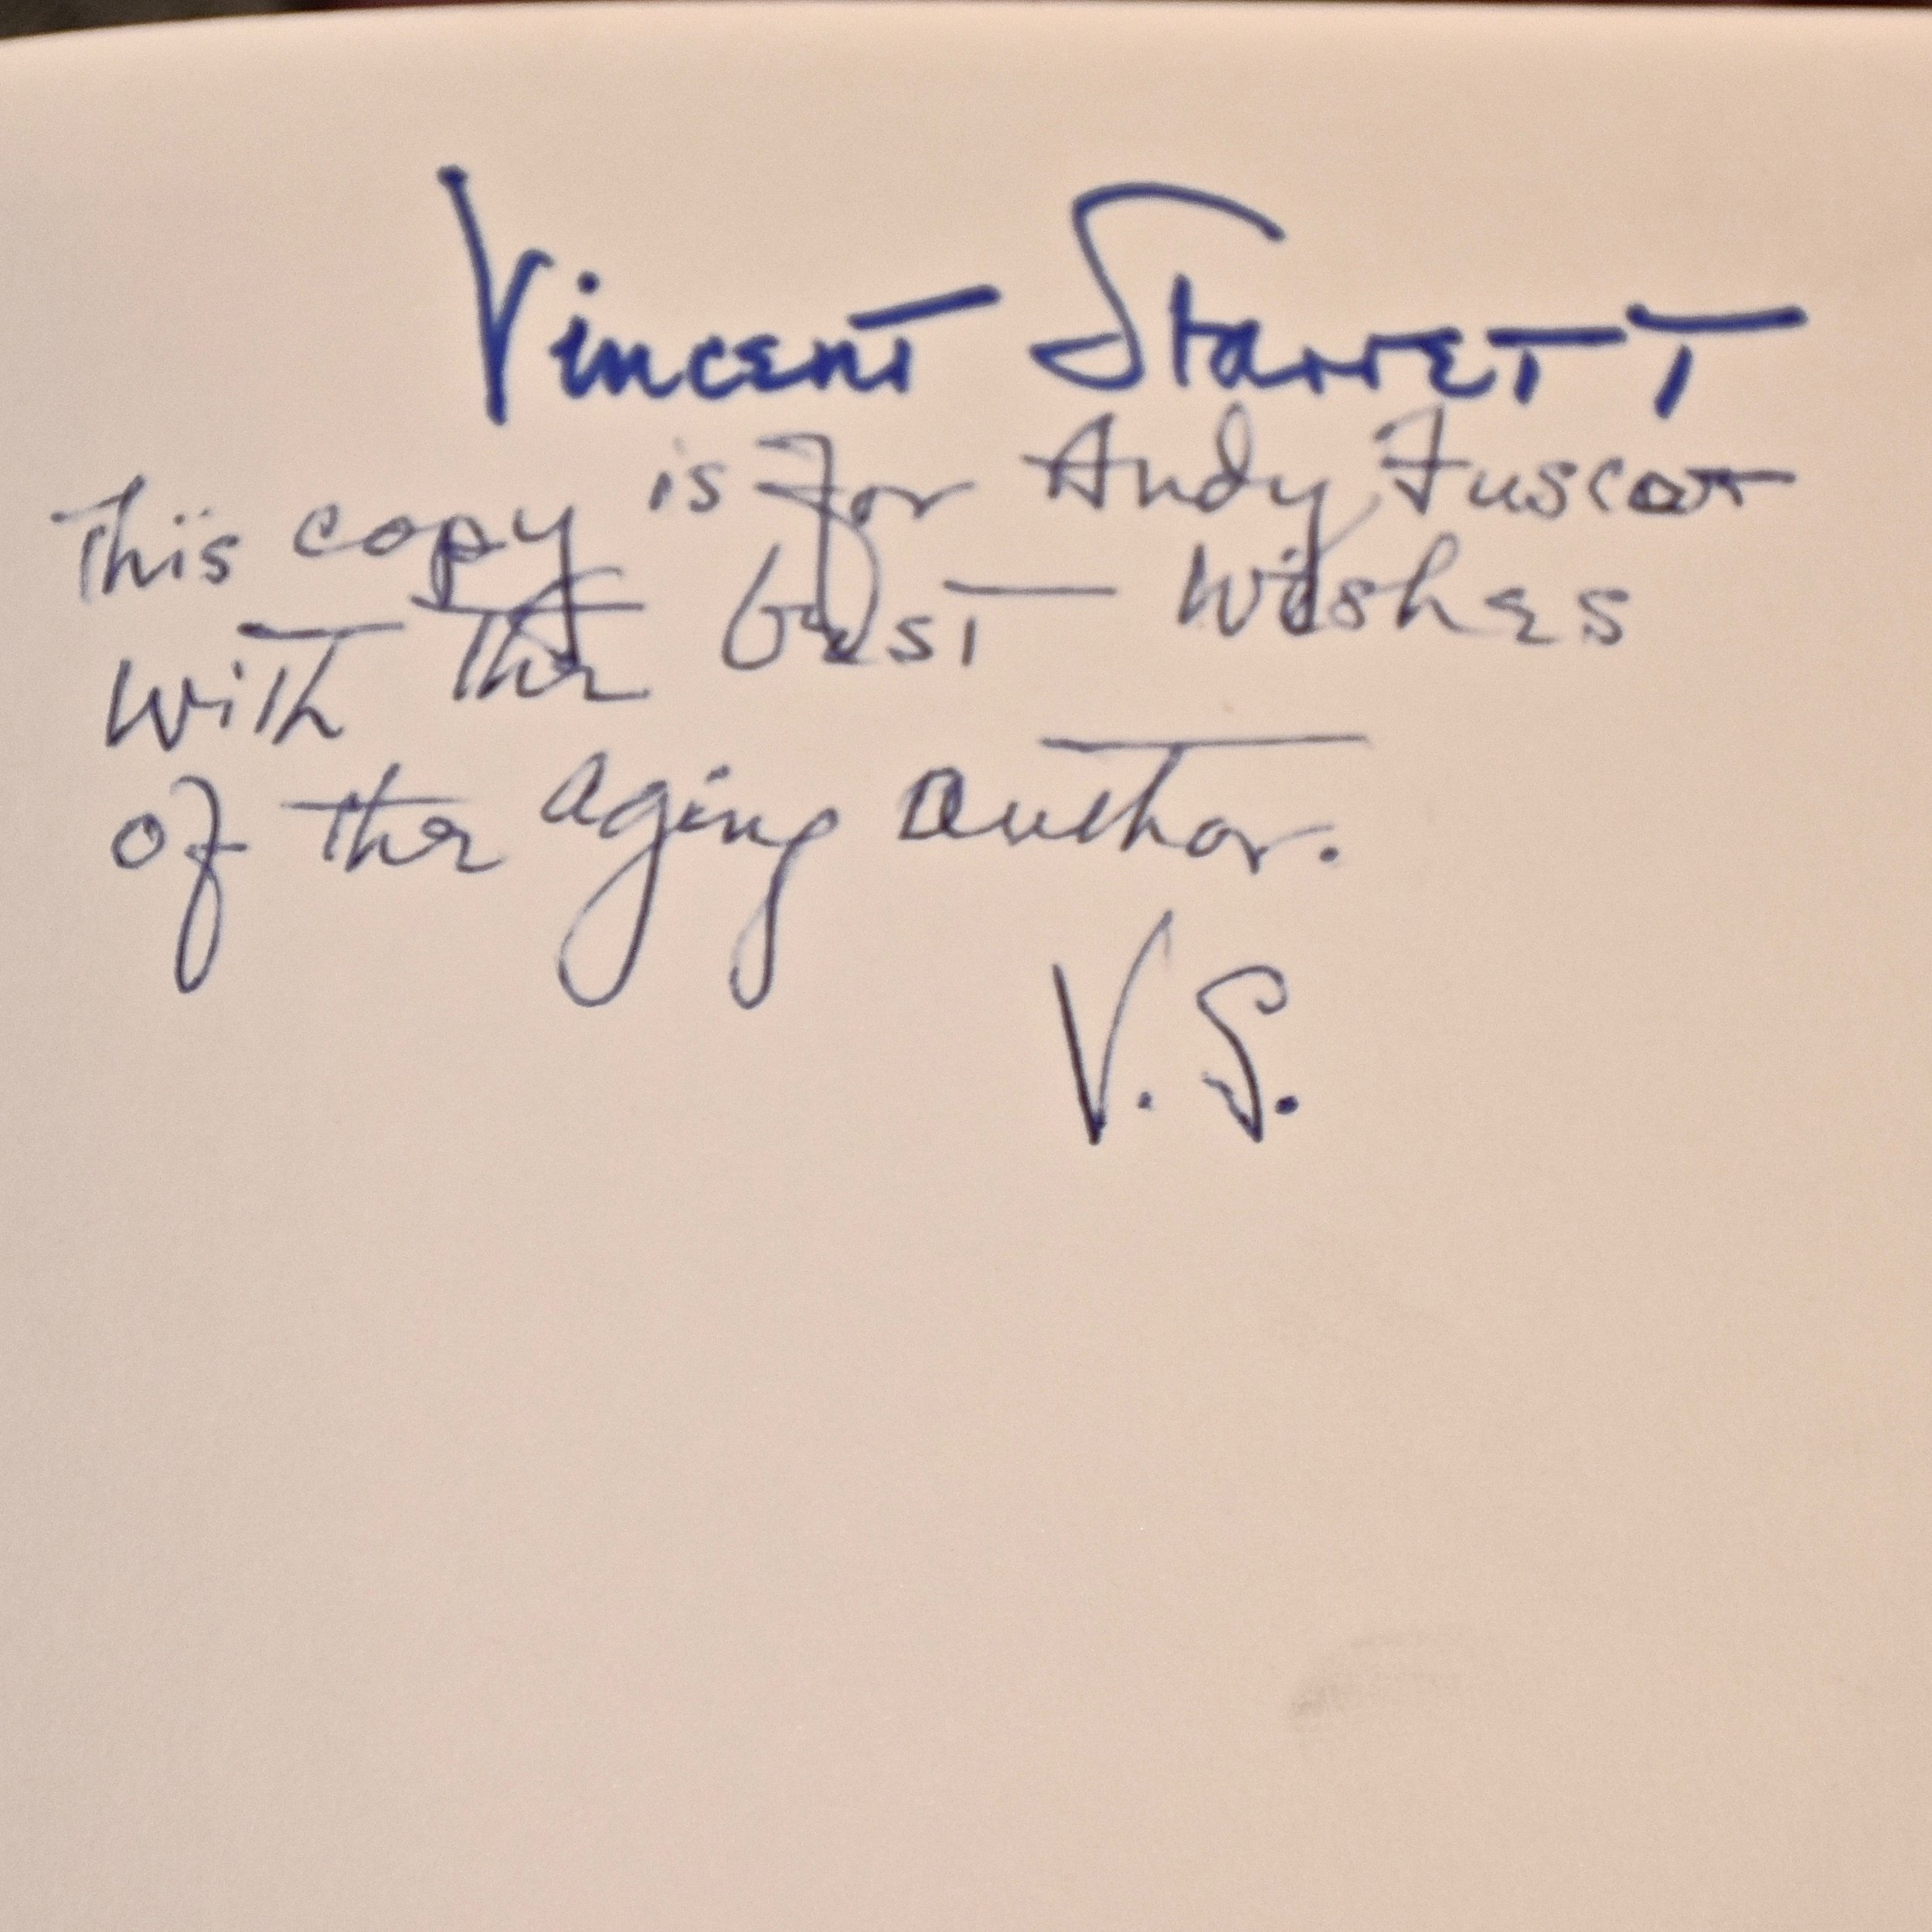 Vincent Starrett
This copy is for Andy Fusco
with the best wishes
of the aging author.
V.S.